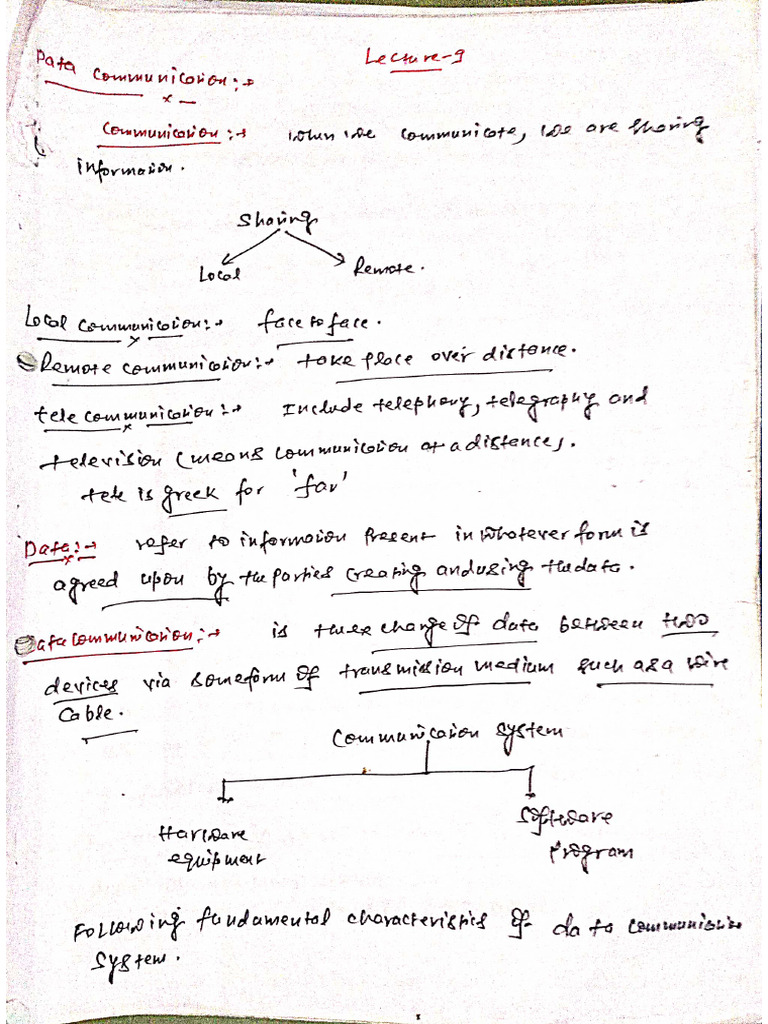 Lecture-9
Data Communication :→
Communication :→ when we communicate, we are sharing
information.
Sharing
Local Remote.
Local communication :→ face to face.
Remote communication :→ take place over distance.
tele communication :→ Include telephony, telegraphy and
television (means communication at a distance).
tele is greek for 'far'
Data :→ refer to information present in whatever form is
agreed upon by the parties creating and using the data.
Data communication :→ is the exchange of data between two
devices via some form of transmission medium such as a wire
Cable.
Communication system
Harware Software
equipment program
Following fundamental characteristics of data communication
system.